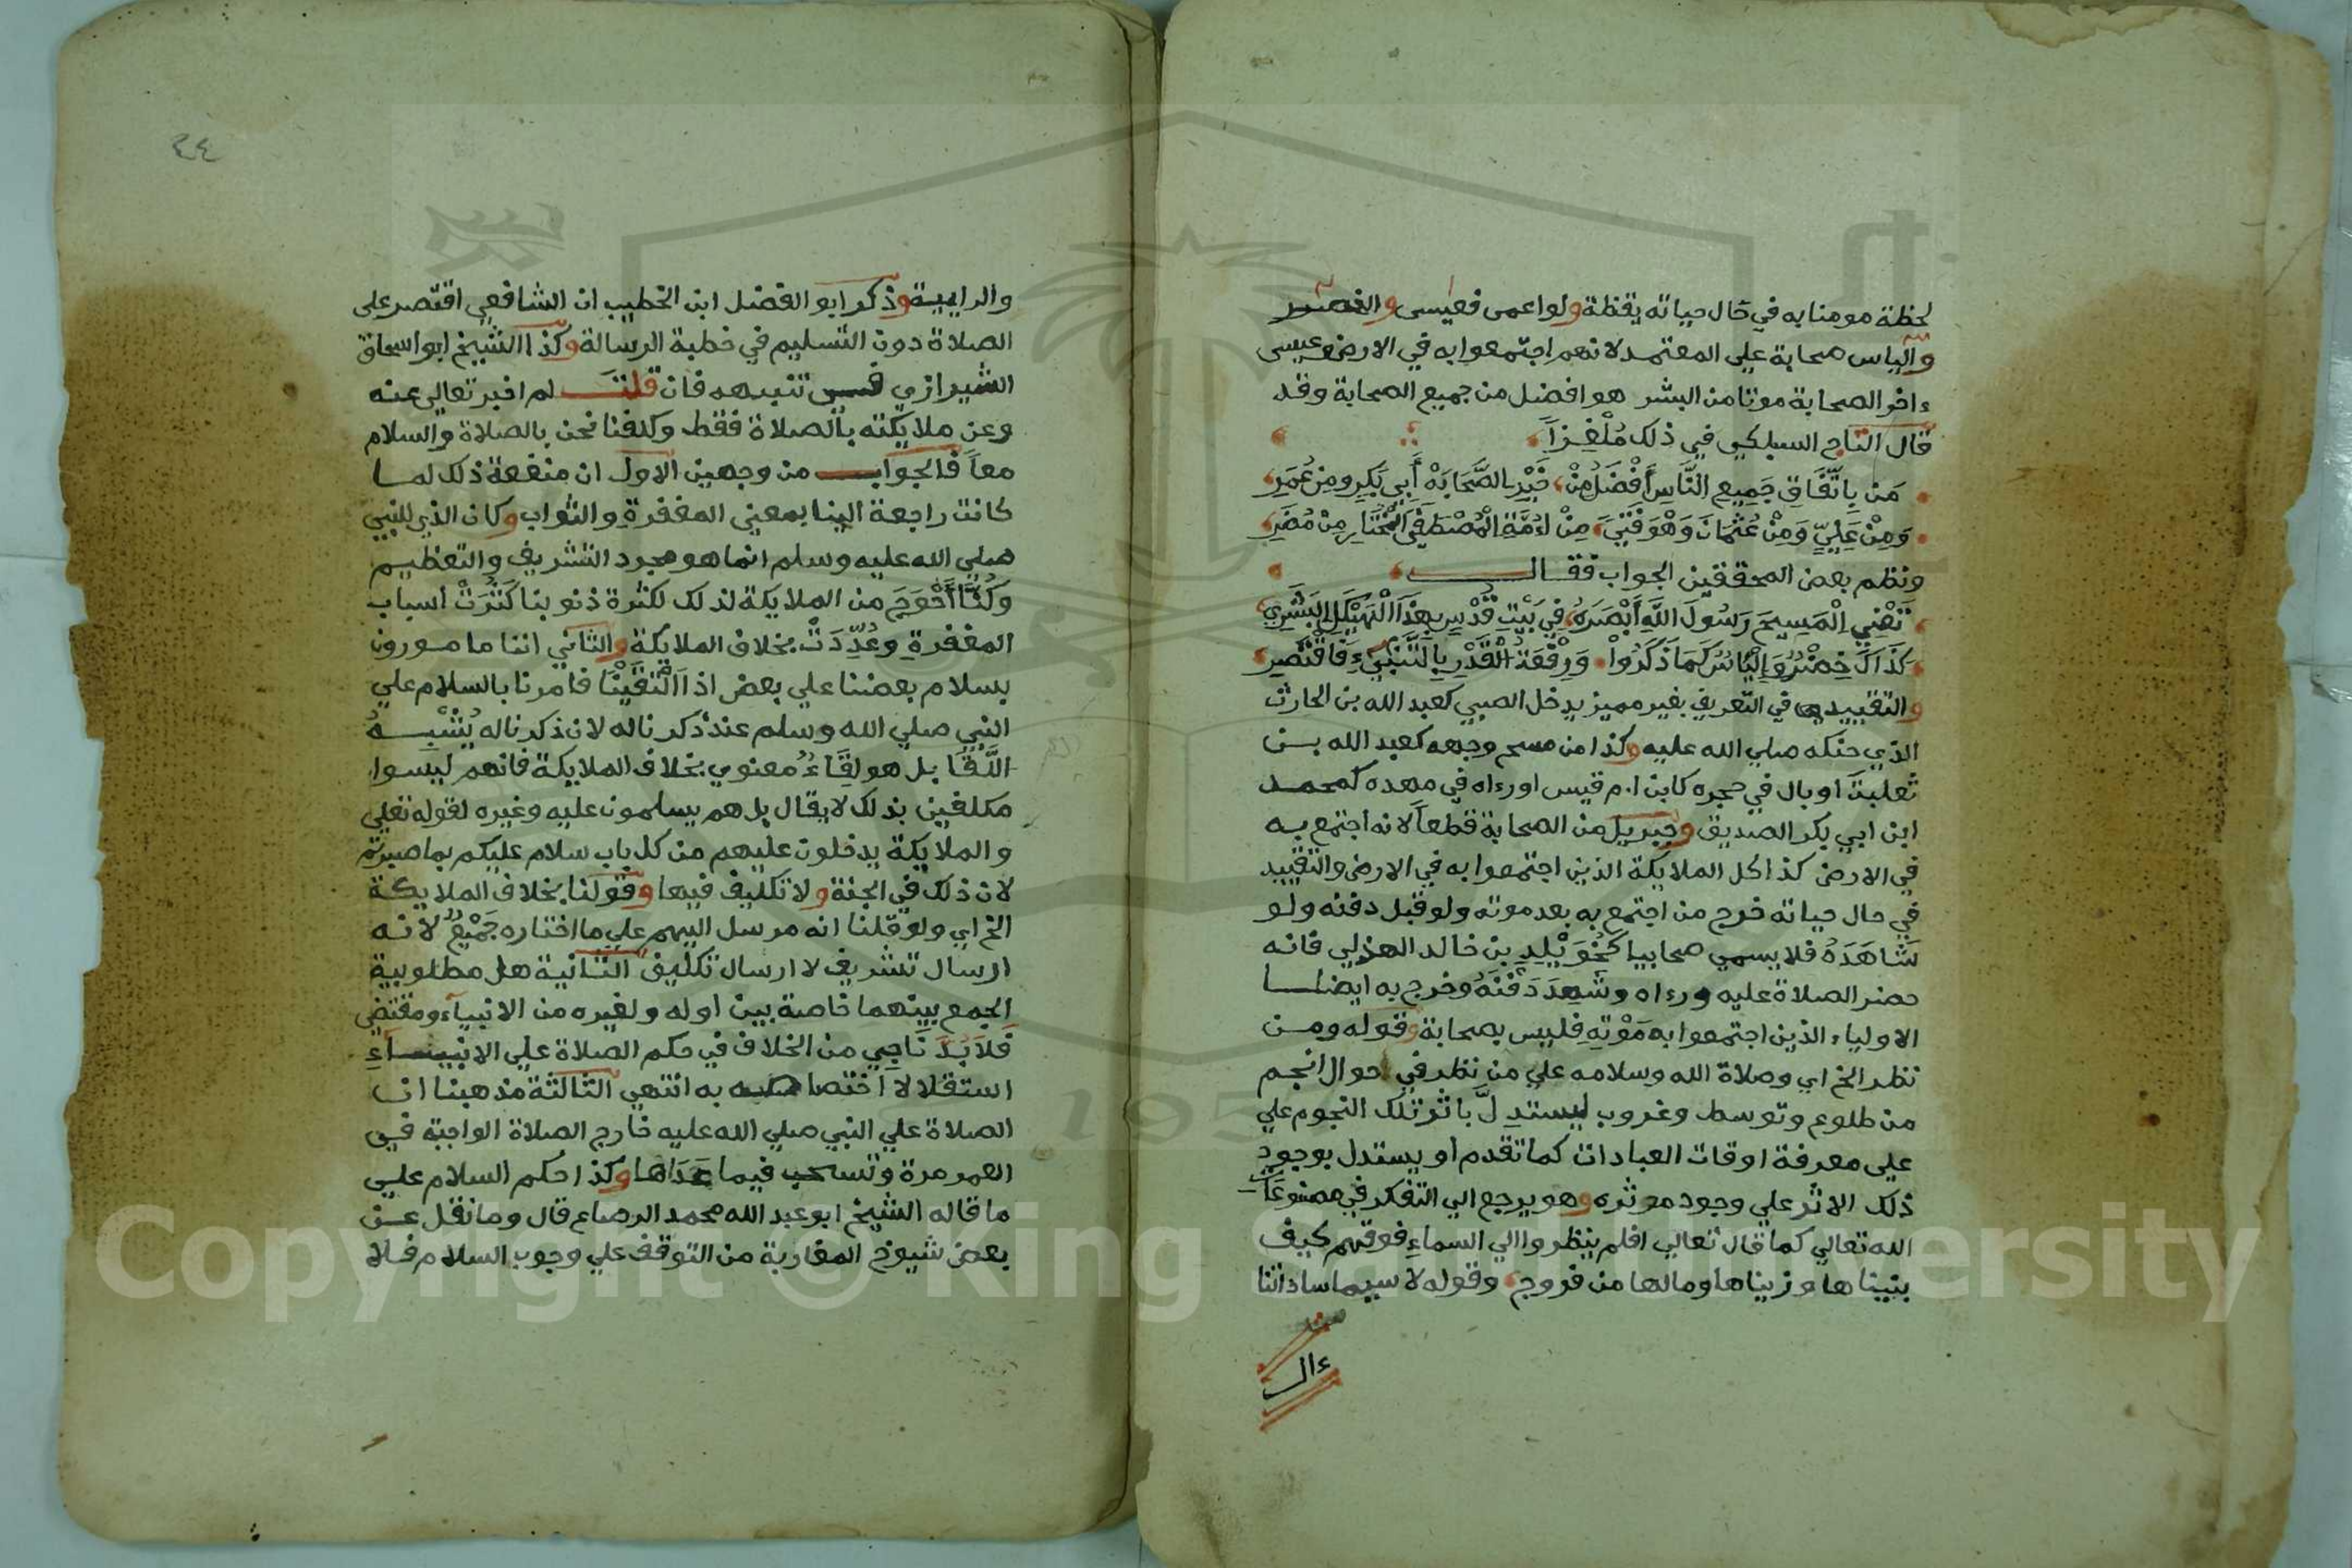 لحظة مومنا به في حال حياته يقظة ولو اعمى فعيسى والخضر
والياس صحابة على المعتمد لانهم اجتمعوا به في الارض وعيسى
ءاخر الصحابة موتا من البشر هو افضل من جميع الصحابة وقد
قال التاج السبكي في ذلك مُلْغِزاً
مَن بِاتِّفَاقِ جَمِيعِ النَّاسِ أَفْضَلُ مِنْ، خَيْرِ الصَّحَابَهْ أَبِي بَكْرٍ وَمِنْ عُمَرِ،
وَمِنْ عَلِيٍّ وَمِنْ عُثْمَانَ وَهْوَ فَتًى، مِنْ اُمَّةِ الْمُصْطَفَى الْمُخْتَارِ مِنْ مُضَرِ،
ونظم بعض المحققين الجواب فقال
تَعْنِي الْمَسِيحَ رَسُولَ اللَّهِ أَبْصَرَهُ، فِي بَيْتِ قُدْسٍ بِهَذَا الْهَيْكَلِ الْبَشَرِي،
كَذَاكَ خِضْرٌ وَإِلْيَاسٌ كَمَا ذَكَرُوا، وَرِفْعَةُ الْقَدْرِ بِالتَّنَبِّيءِ فَاقْتَصِرِ،
والتقييد في التعريف بغير مميز يدخل الصبي كعبد الله بن الحارث
الذي حنكه صلي الله عليه وكذا من مسح وجهه كعبد الله بن
ثعلبة او بال في حجره كابن ام قيس اورءاه في مهده كمحمد
ابن ابي بكر الصديق وجبريل من الصحابة قطعاً لانه اجتمع به
في الارض كذا كل الملايكة الذين اجتمعوا به في الارض والتقييد
في حال حياته خرج من اجتمع به بعد موته ولو قبل دفنه ولو
شَاهَدَهُ فلا يسمي صحابيا كَخُوَيْلِدِ بن خالد الهذلي فانه
حضر الصلاة عليه ورءاه وشَهِدَ دَفْنَهُ وخرج به ايضا
الاولياء الذين اجتمعوا به مَوْتِهِ فليس بصحابة وقوله ومن
نظر الخ اي وصلاة الله وسلامه علي من نظر في احوال انجم
من طلوع وتوسط وغروب ليستدِلَّ باثر تلك النجوم علي
علي معرفة اوقات العبادات كما تقدم او يستدل بوجود
ذلك الاثر علي وجود موثره وهو يرجع الي التفكر في مصنوعات
الله تعالي كما قال تعالي افلم ينظروا الي السماءِ فوقهم كيف
بنيناها وزيناها وما لها من فروج، وقوله لا سيما ساداتنا
ءال
٢٤
والرابية وذكر ابو الفضل ابن الخطيب ان الشافعي اقتصر على
الصلاة دون التسليم في خطبة الرسالة وكذا الشيخ ابو اسحاق
الشيرازي في تنبيهه فان قلت لم اخبر تعالى عنه
وعن ملايكته بالصلاة فقط وكلفنا نحن بالصلاة والسلام
معاً فالجواب من وجهين الاول ان منفعة ذلك لما
كانت راجعة الينا بمعني المغفرةِ والثواب وكان الذي للنبي
صلي الله عليه وسلم انما هو مجرد التشريف والتعظيم
وَكُنَّا أَحْوَجَ من الملايكة لذلك لكثرة ذنوبنا كَثُرَتْ اسباب
المغفرةِ وعُدِّدَتْ بخلاف الملايكة والثاني اننا مامورون
بسلام بعضنا علي بعض اذا الْتَقَيْنَا فامرنا بالسلام علي
النبي صلي الله وسلم عند ذكرنا له لان ذكرنا له يُشْبِهُ
اللِّقَا بل هو لِقَاءٌ معنوي بخلاف الملايكة فانهم ليسوا
مكلفين بذلك لا يقال بل هم يسلمون عليه وغيره لقوله تعلي
والملايكة يدخلون عليهم من كل باب سلام عليكم بما صبرتم
لان ذلك في الجنة ولا تكليف فيها وقولنا بخلاف الملايكة
الخ اي ولو قلنا انه مرسل اليهم علي ما اختاره جَمْعٌ لانه
ارسال تشريف لا ارسال تكليف الثانية هل مطلوبية
الجمع بينهما خاصة بين اوله ولغيره من الانبيآء ومقتضي
فَلاَ بُدَّ نَاجِي من الخلاف في حكم الصلاة علي الانبياءِ
استقلالا اختصاصه به انتهي الثالثة مذهبنا ان
الصلاة علي النبي صلي الله عليه خارج الصلاة الواجبة في
العمر مرة وتستحب فيما عَدَاها وكذا حكم السلام علي
ما قاله الشيخ ابو عبد الله محمد الرصاع قال وما نقل عن
بعض شيوخ المغاربة من التوقف علي وجوب السلام فلا
Copyright © King Saud University
1957